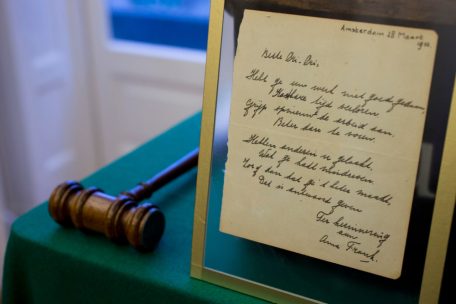 Amsterdam 28 Maart
Beste Cri-Cri.
Hebt ge uw werk niet goed gedaan,
Kostbare tijd verloren
Grijp opnieuw de arbeid aan
Beter dan te voren.
Hebben anderen u gelaakt,
Wat ge hadt misdreven.
Zorg dan dat ge 't beter maakt,
Dat is antwoord geven
Ter herinnering
aan
Anne Frank.